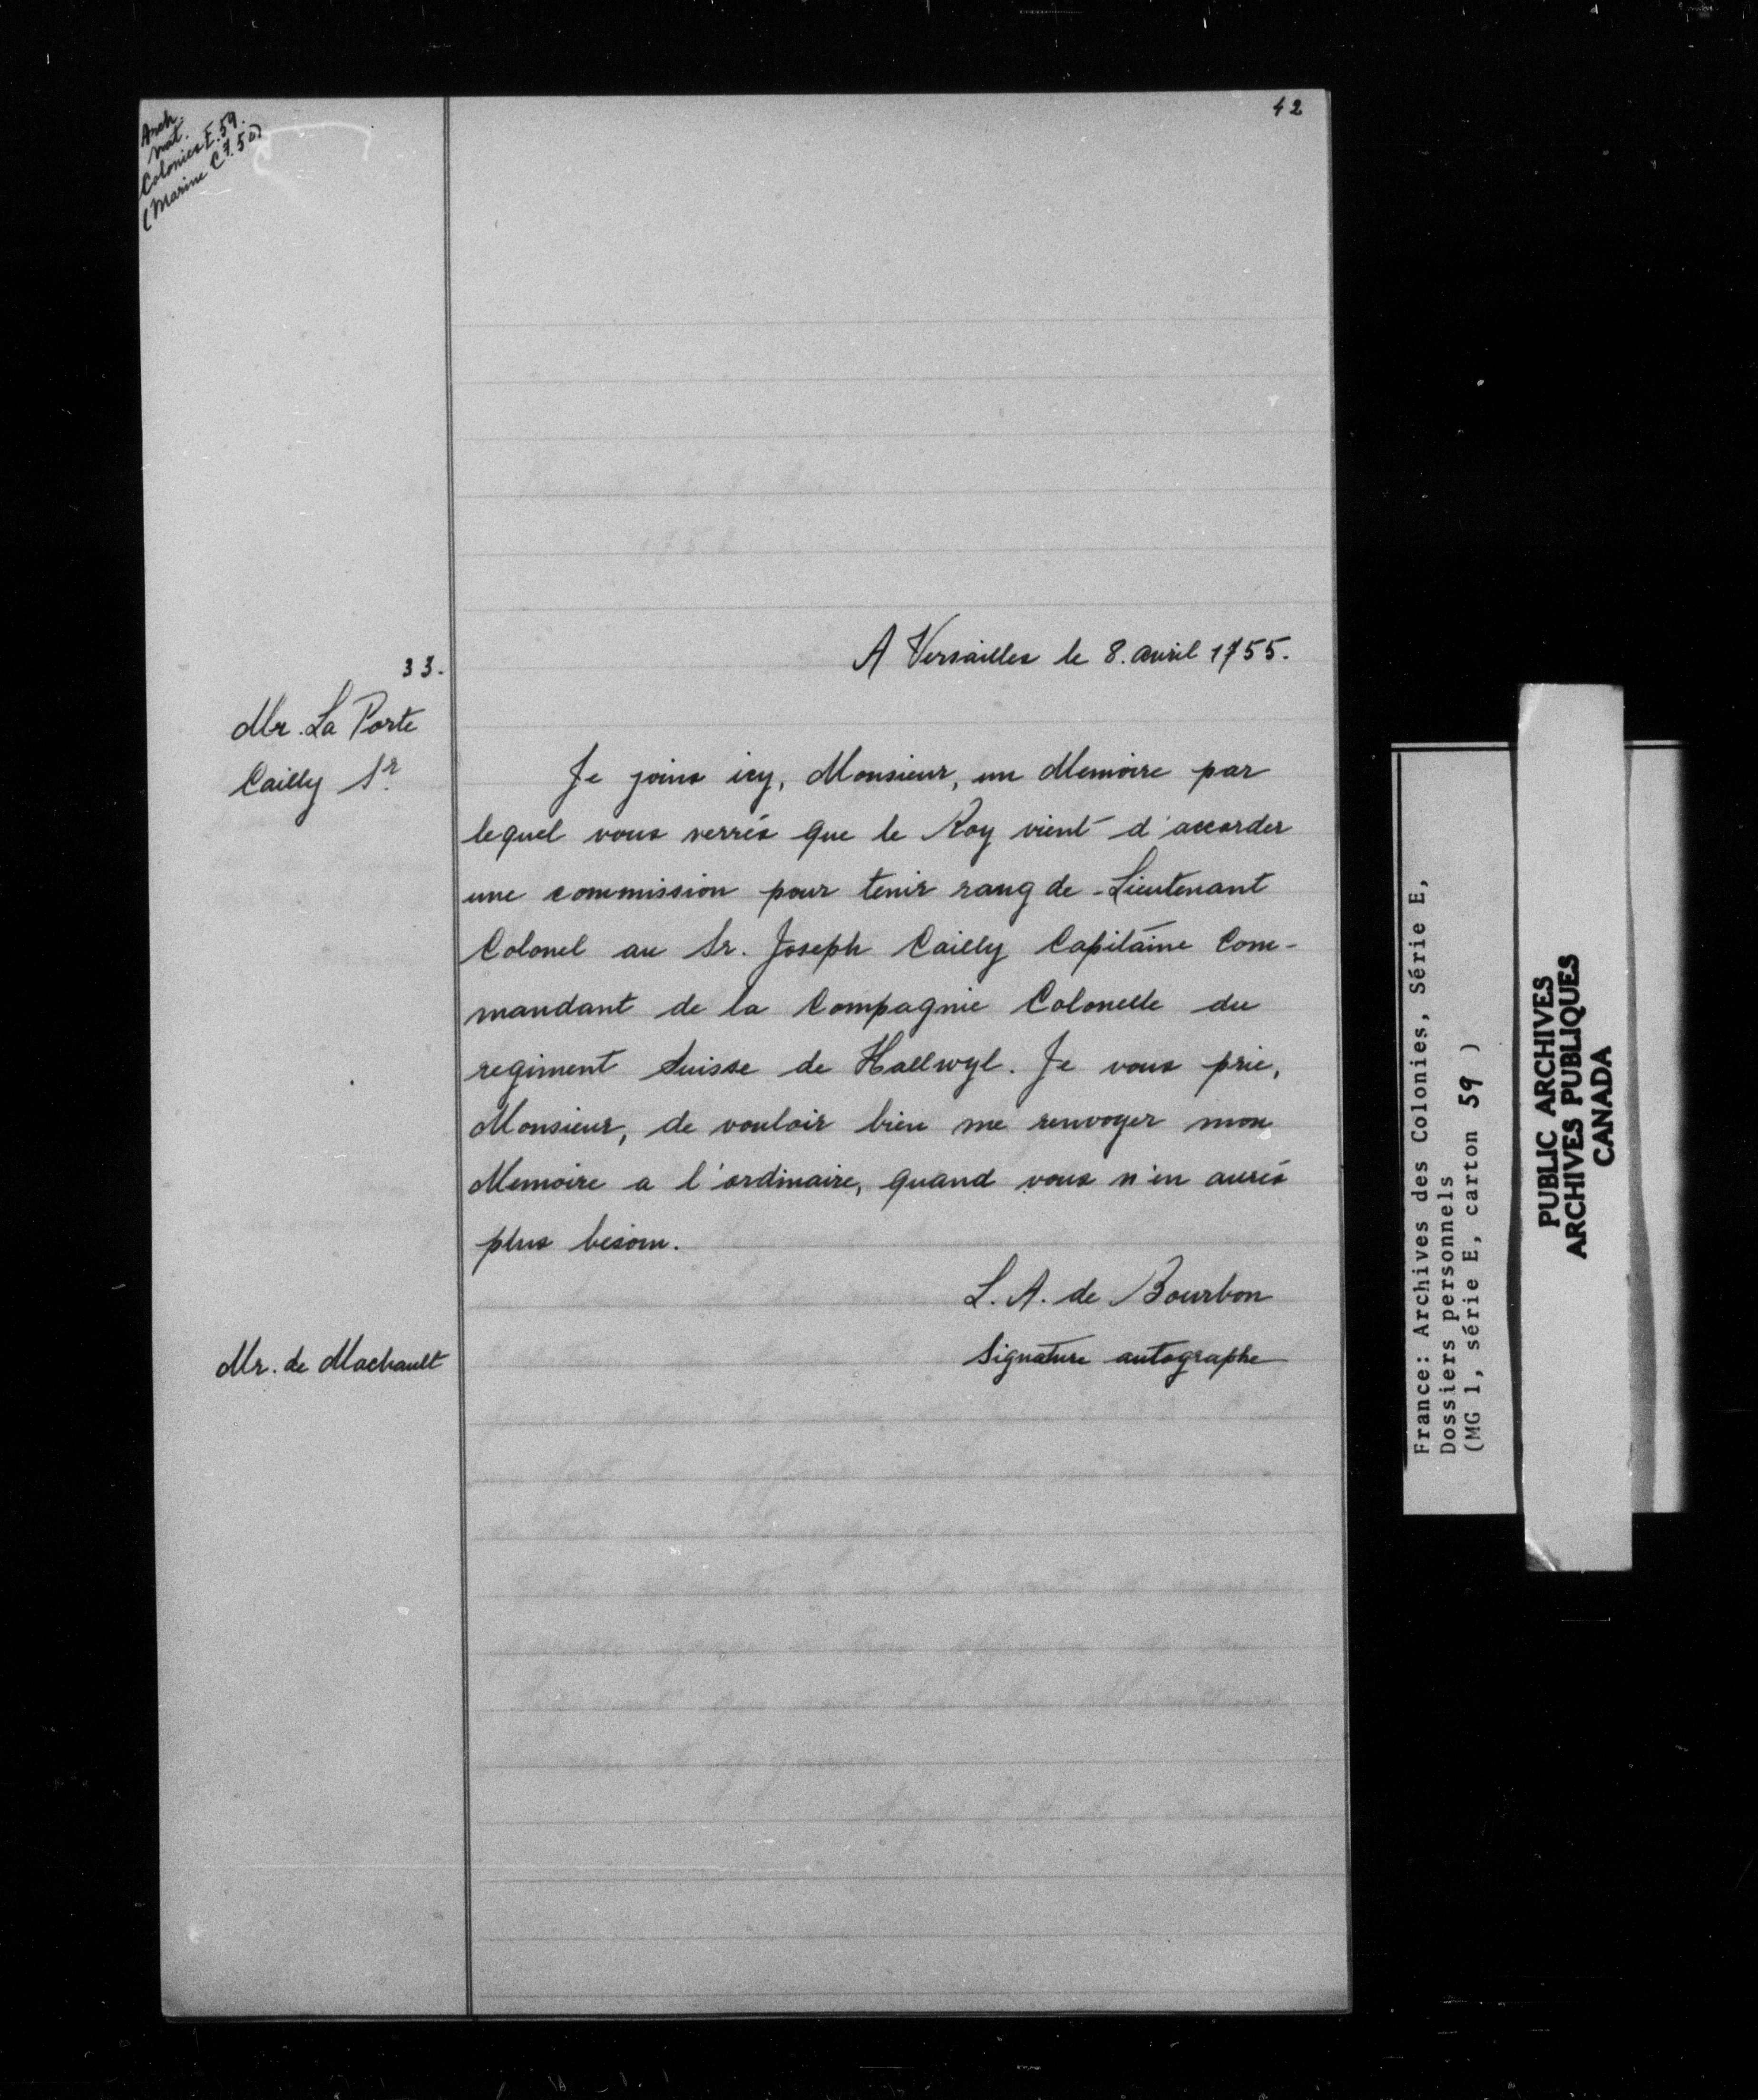 42
Arch.
nat.
Colonies E. 59.
(Marine C 7. 50)
A Versailles le 8. avril 1755.
33.
Mr. La Porte
Cailly Sr.
Je joins icy, Monsieur, un Memoire par
lequel vous verrés que le Roy vient d'accorder
une commission pour tenir rang de Lieutenant
Colonel au Sr. Joseph Cailly Capitaine Com-
mandant de la Compagnie Colonelle du
regiment Suisse de Hallwyl. Je vous prie,
Monsieur, de vouloir bien me renvoyer mon
Memoire a l'ordinaire, quand vous n'en aurés
plus besoin.
L. A. de Bourbon
Signature autographe
Mr. de Machault
France: Archives des Colonies, Série E,
Dossiers personnels
(MG 1, série E, carton 59 )
PUBLIC ARCHIVES
ARCHIVES PUBLIQUES
CANADA